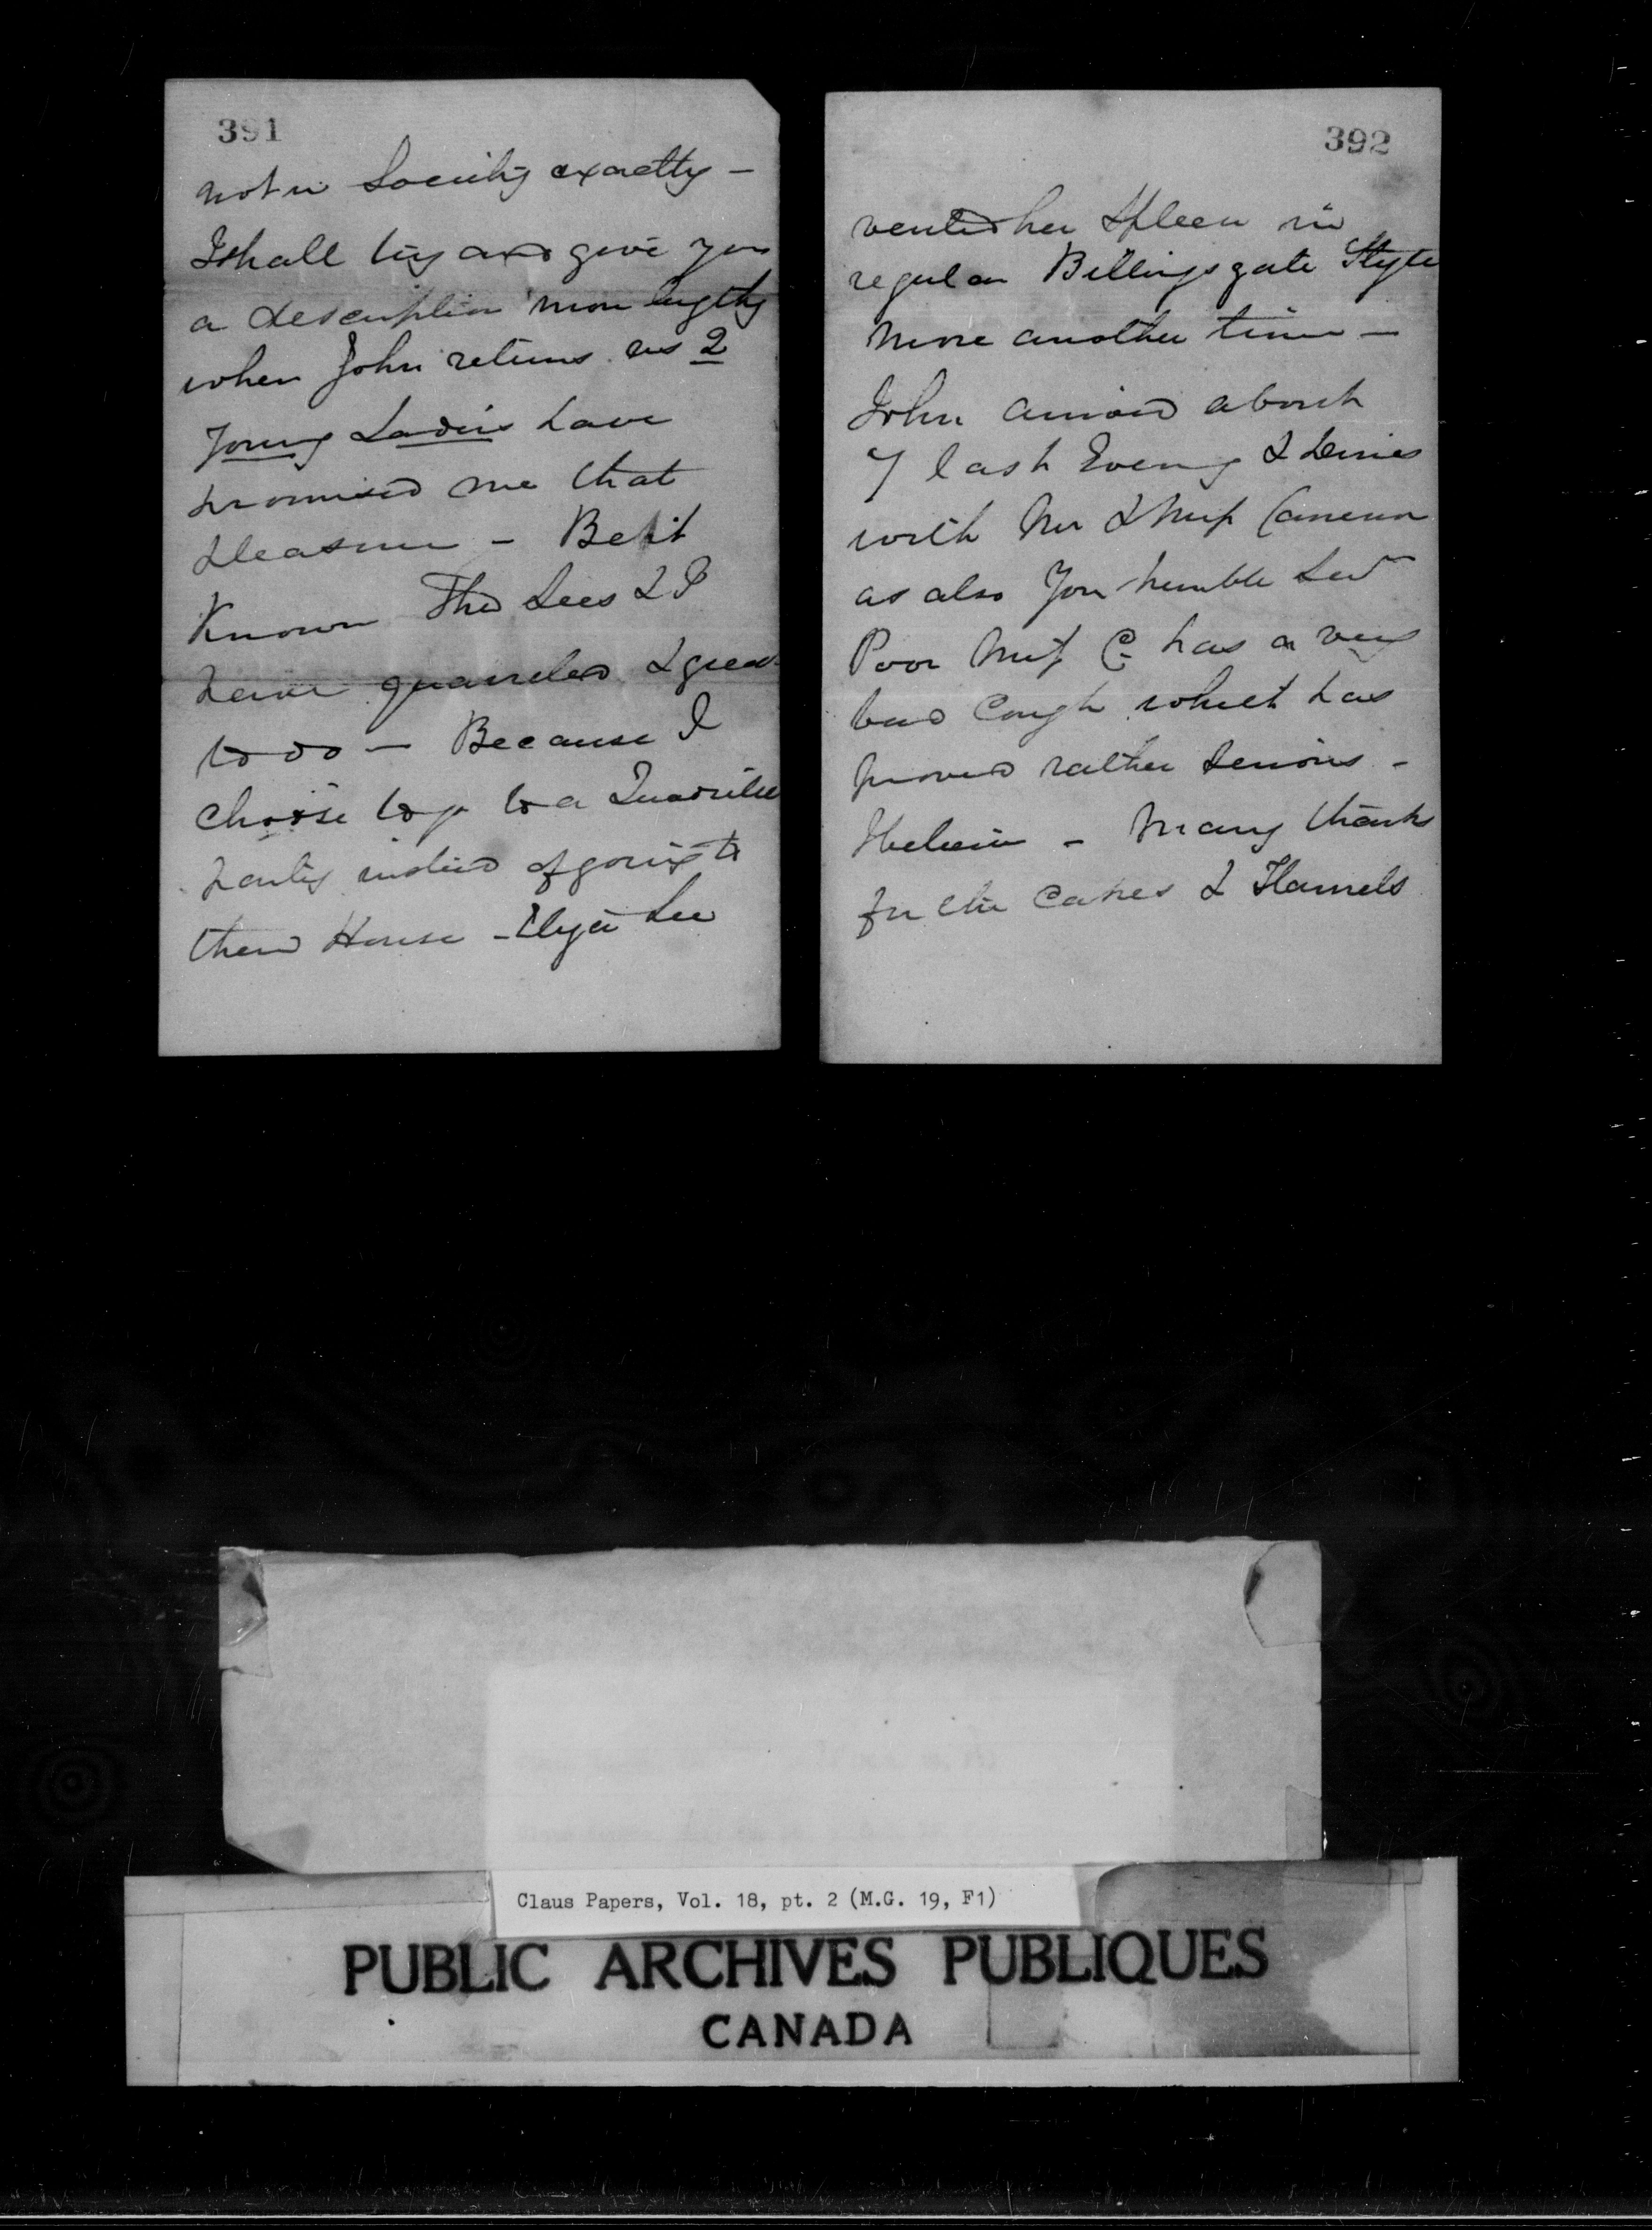 391
not in Society exactly –
I shall try and give you
a description more lengthy
when John returns as 2
Young Ladies have
promised me that
pleasure – Be it
Known The Lees & I
have quarreled & great
to do – Because I
choose to go to a Quadrille
party instead of going to
their House – Eliza Lee
392
vented her Spleen in
regular Billingsgate Style
more another time –
John arrived about
7 last Evening & Dines
with Mr & Miss Cameron
as also Your humble Servt
Poor Miss C. has a very
bad Cough which has
proved rather serious –
many thanks
for the Cakes & Flannels
Claus Papers, Vol. 18, pt. 2 (M.G. 19, F1)
PUBLIC ARCHIVES PUBLIQUES
CANADA